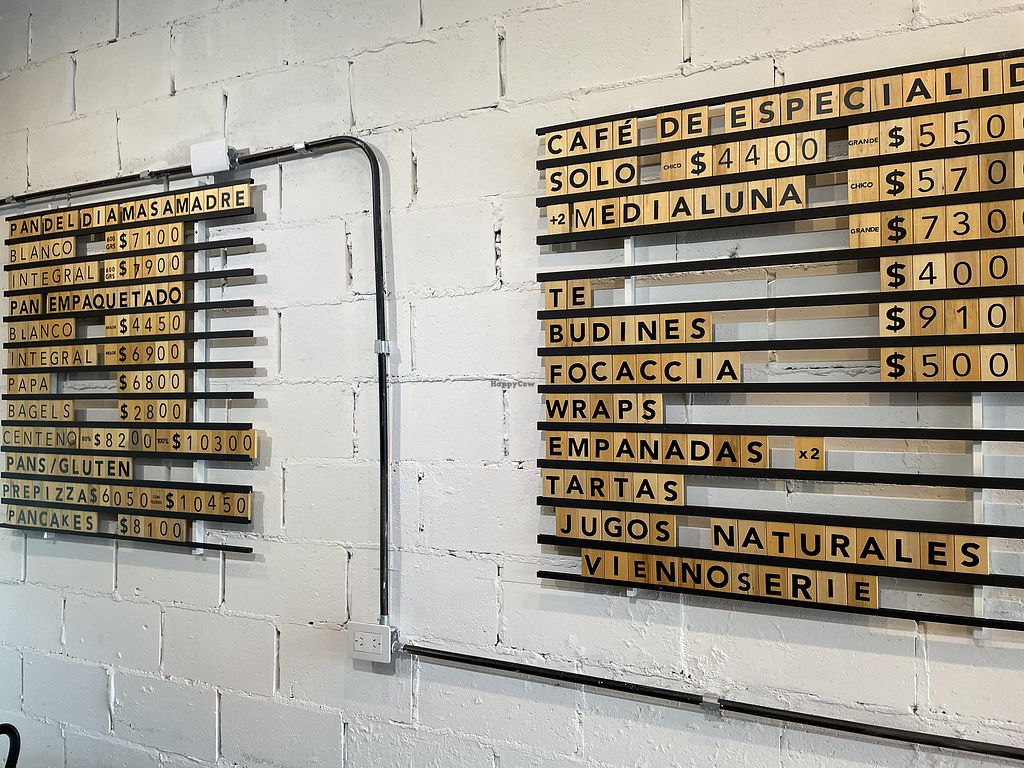 PAN DEL DIA MASAMADRE
BLANCO 600 GRS $7100
INTEGRAL 600 GRS $7900
PAN EMPAQUETADO
BLANCO MOLDE $4450
INTEGRAL MOLDE $6900
PAPA $6800
BAGELS $2800
CENTENO 80% $8200 100% $10300
PAN S/GLUTEN
PREPIZZA $6050 CON QUESO $10450
PANCAKES $8100
CAFÉ DE ESPECIALID
SOLO CHICO $4400 GRANDE $550
+2 MEDIALUNA CHICO $570
GRANDE $730
TE $400
BUDINES $910
FOCACCIA $500
WRAPS
EMPANADAS x2
TARTAS
JUGOS NATURALES
VIENNOSERIE
HappyCow